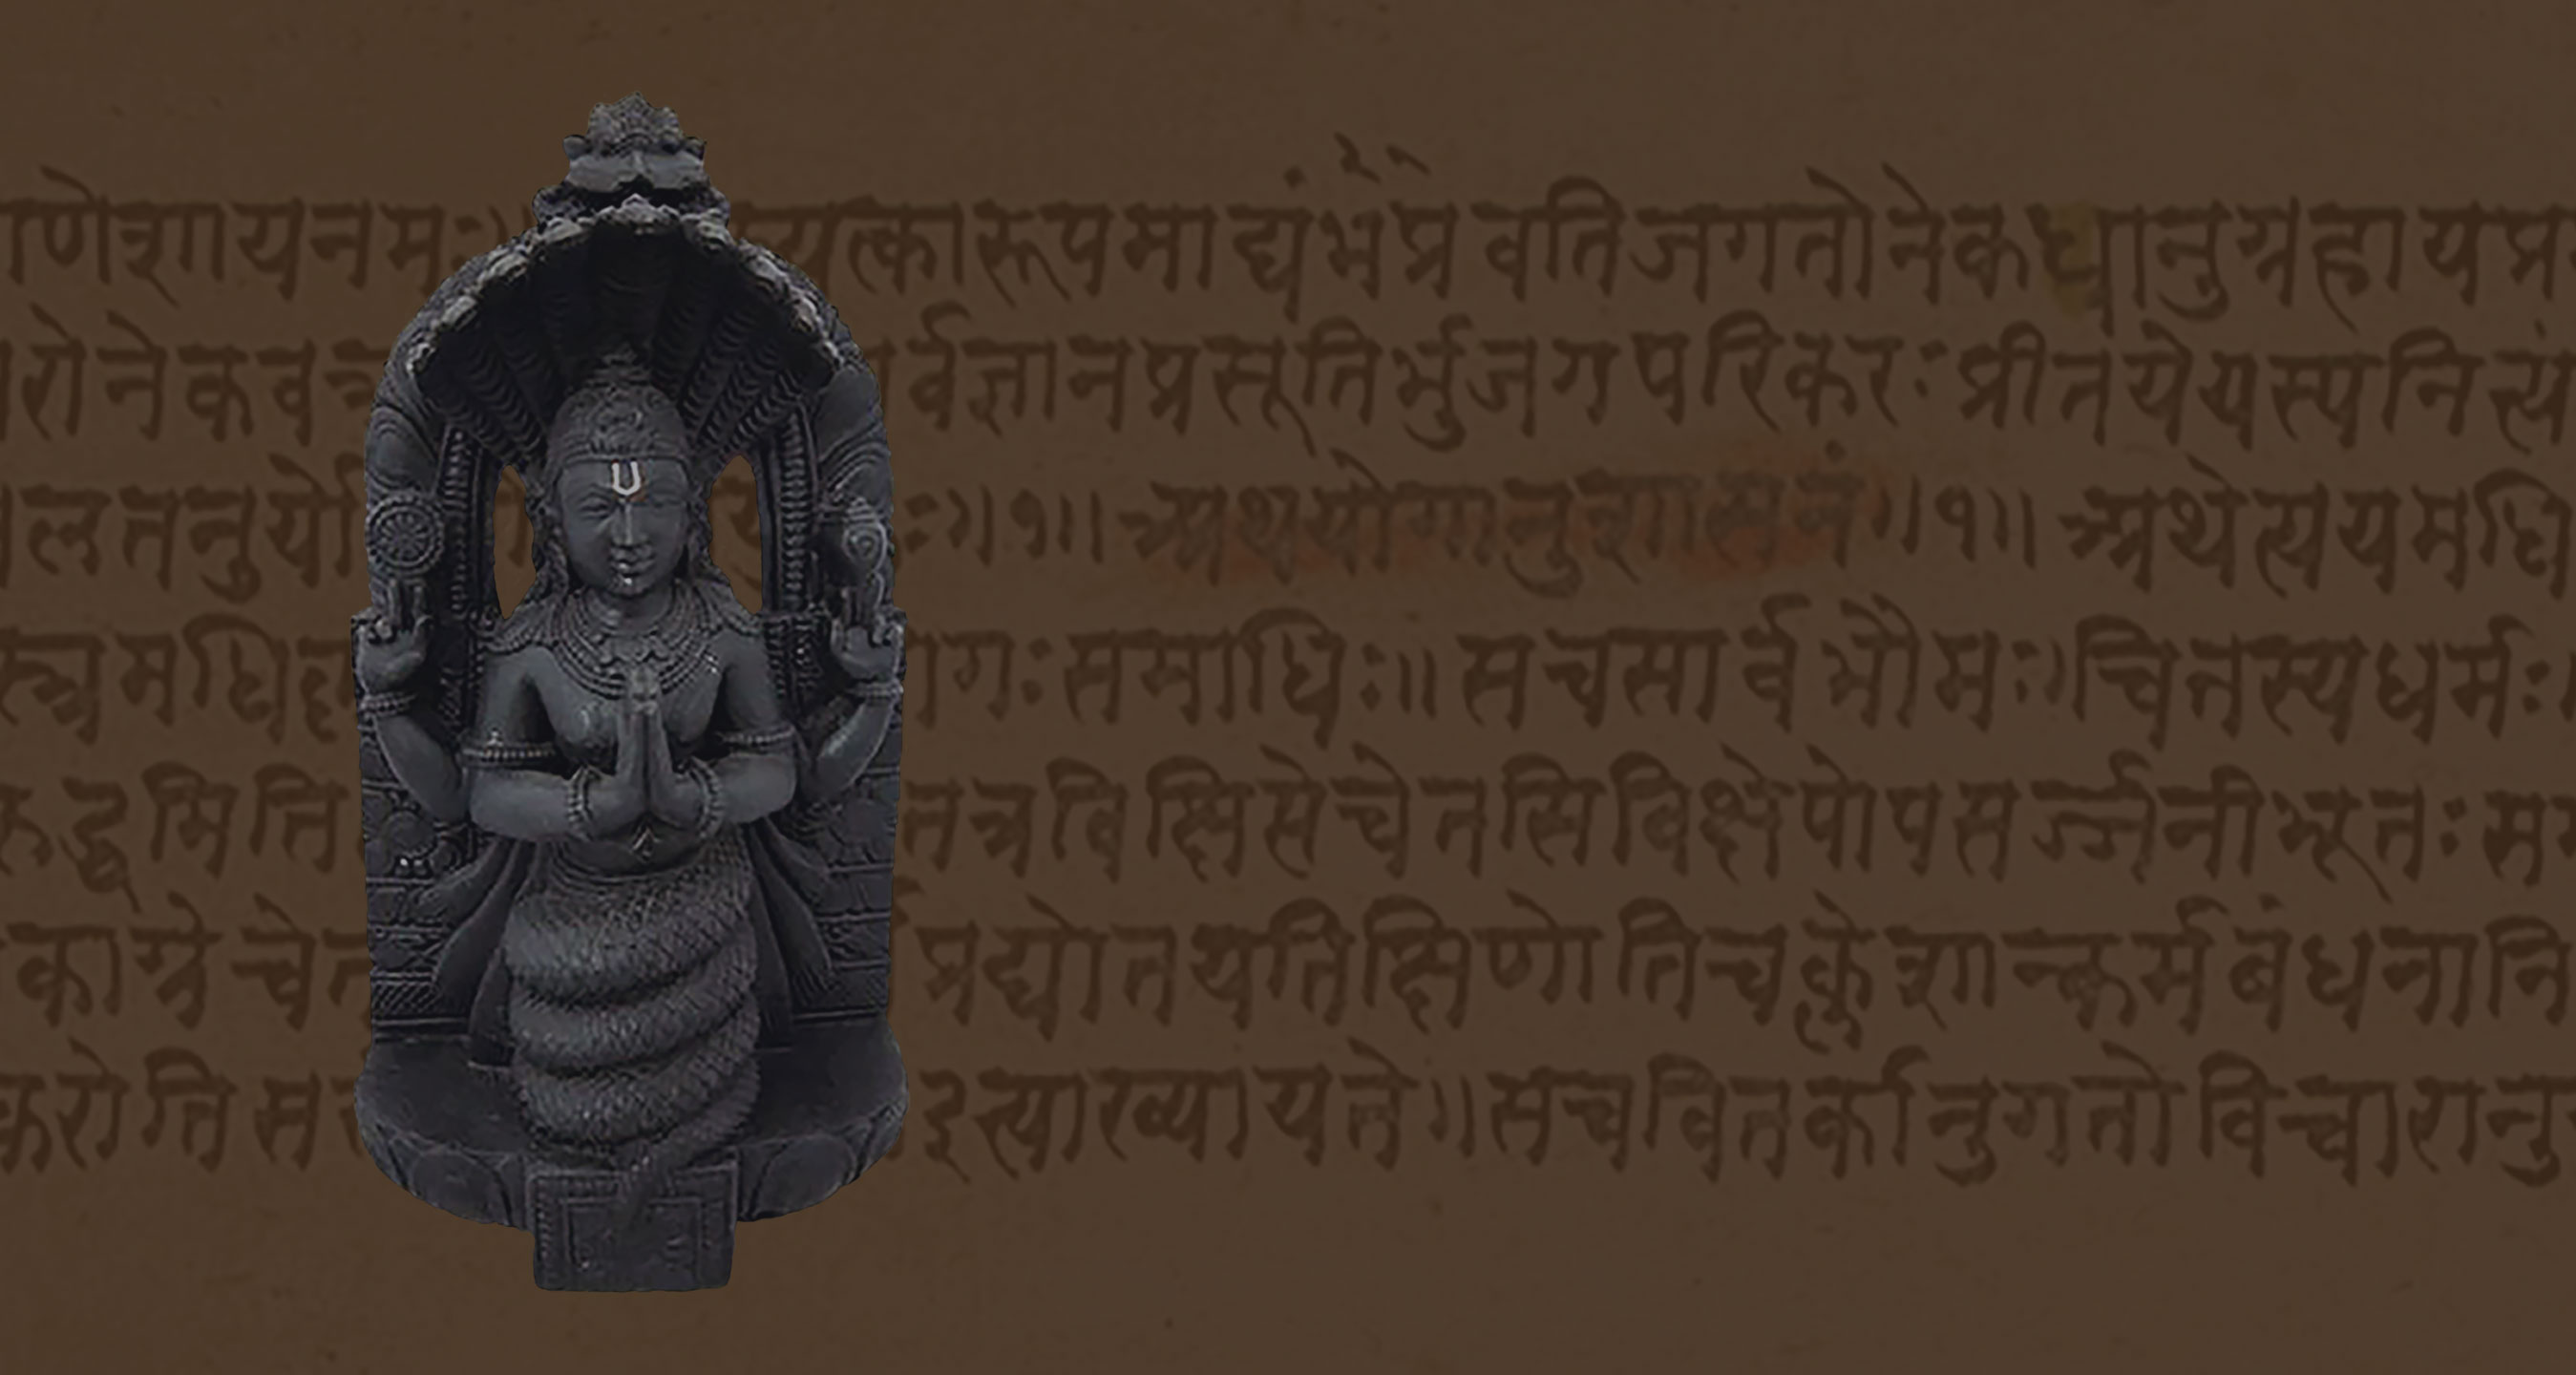 णेशायनमः। यत्कारूपमाद्यं प्रभवतिजगतोनेकधानुग्रहायप्र
रोनेकवक्त्र र्वज्ञानप्रसूतिर्भुजगपरिकरःप्रीतयेयस्यनित्यं
लतनुर्यो ः॥१॥ अथयोगानुशासनं॥१॥ अथेत्ययमधि
स्त्रमधिकृ गःसमाधिः॥ सचसार्वभौमः।चित्तस्यधर्मः
रुद्धमिति तत्रविक्षिप्तेचेतसिविक्षेपोपसर्जनीभूतः स
काग्रेचेत प्रद्योतयतिक्षिणोतिचक्लेशान्कर्मबंधनानि
करोति स इत्याख्यायते॥सचवितर्कानुगतोविचारानु